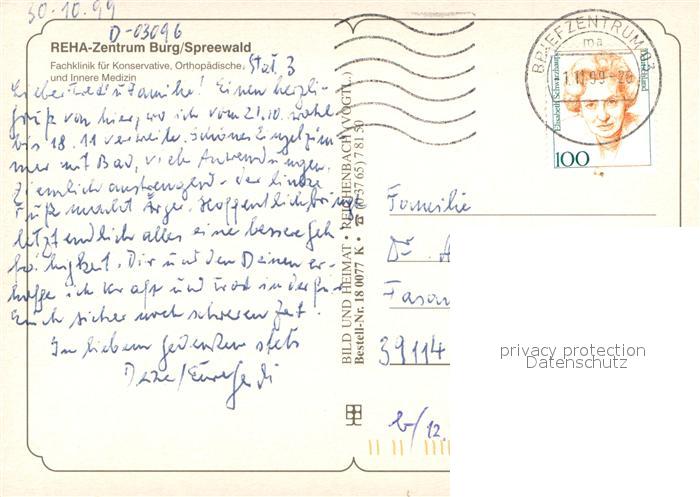 30.10.99
D-03096
REHA-Zentrum Burg/Spreewald
Fachklinik für Konservative, Orthopädische, Stat. 3
und Innere Medizin
Lieber Fred u Familie! Einen herzli-
gruß von hier, wo ich vom 21.10. wohl
bis 18.11 verweile. Schönes Einzelzim
mer mit Bad, viele Anwendungen,
ziemlich anstrengend - der linke
Fuß macht Ärger. Hoffentlich bringt
letztendlich alles eine bessere Geh
fähigkeit. Dir und den Deinen er-
hoffe ich Kraft und Trost in der für
Euch sicher noch schweren Zeit.
In liebem Gedenken stets
Deine/Eure
BILD UND HEIMAT • REICHENBACH (VOGTL.)
Bestell-Nr. 18 0077 K • ☎ (0 37 65) 7 81 50
BRIEFZENTRUM 03
ma
1.11.99-20
Elisabeth Schwarzhaupt
Deutschland
100
Familie
Dr.
Fasan
39114
b/12.
privacy protection
Datenschutz